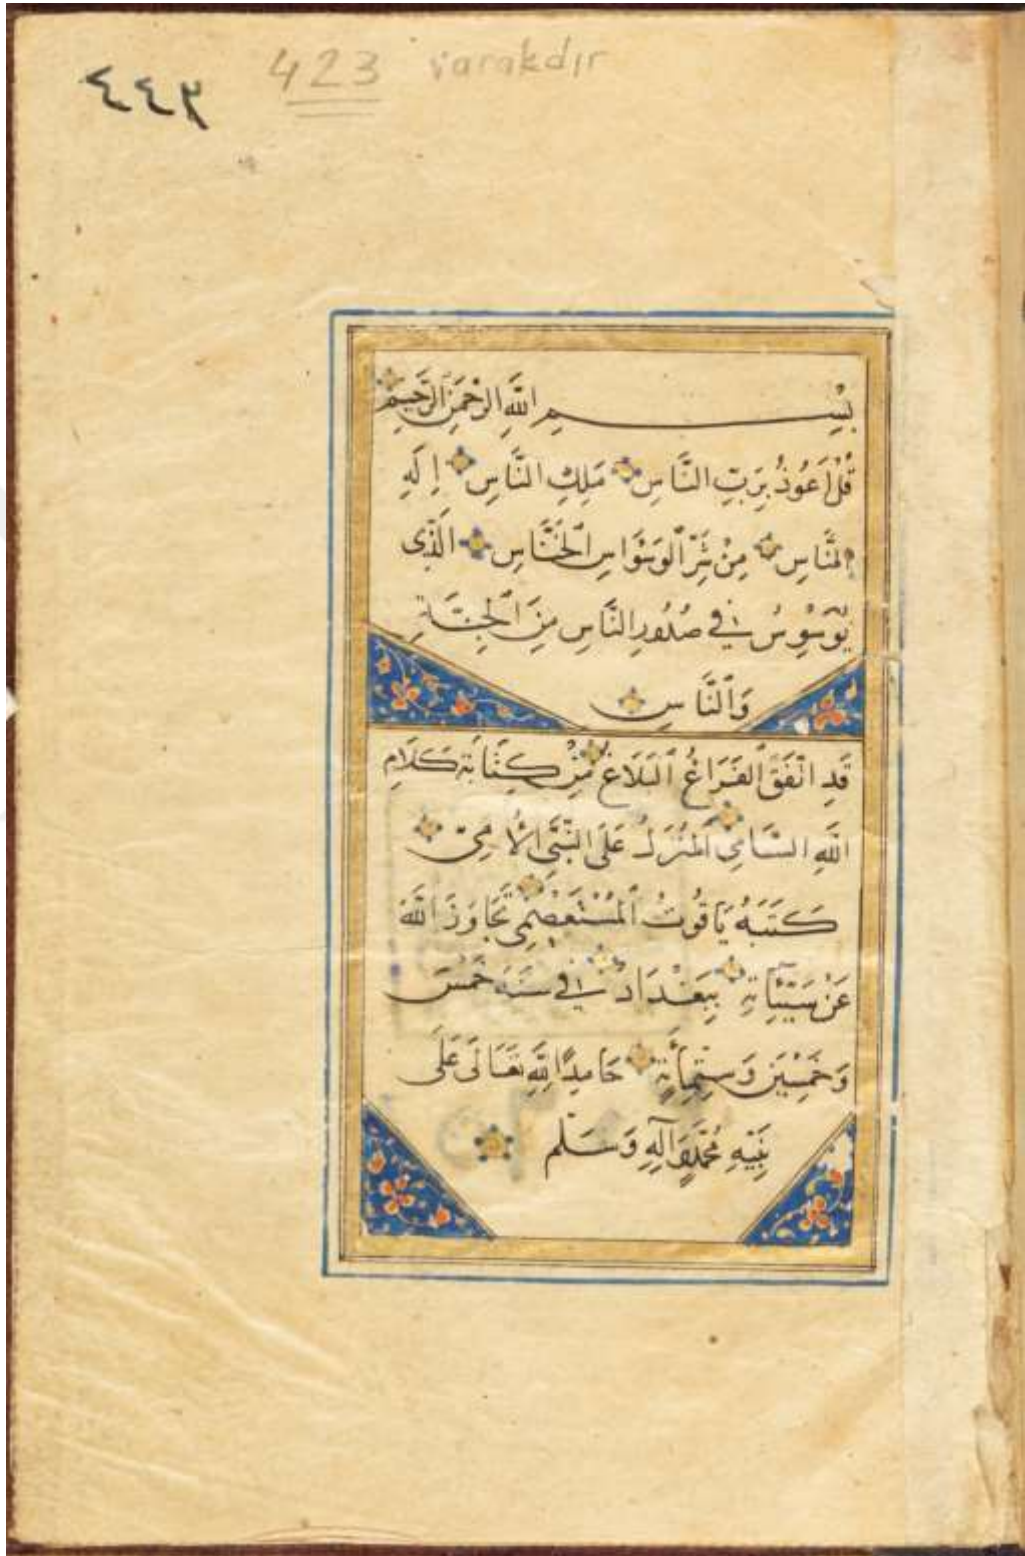 423 varakdır
٤٤٢
بِسْمِ اللَّهِ الرَّحْمَنِ الرَّحِيمِ
قُلْ أَعُوذُ بِرَبِّ النَّاسِ مَلِكِ النَّاسِ إِلَهِ
النَّاسِ مِنْ شَرِّ الْوَسْوَاسِ الْخَنَّاسِ الَّذِى
يُوَسْوِسُ فِى صُدُورِ النَّاسِ مِنَ الْجِنَّةِ
وَالنَّاسِ
قَدِ اتَّفَقَ الْفَرَاغُ الْبَلَاغُ مِنْ كِتَابَةِ كَلَامِ
اللَّهِ السَّامِى الْمُنْزَلُ عَلَى النَّبِىِّ الْأُمِّىِّ
كَتَبَهُ يَاقُوتُ الْمُسْتَعْصِمِى تَجَاوَزَ اللَّهُ
عَنْ سَيِّئَاتِهِ بِبَغْدَادَ فِى سَنَةِ خَمْسَ
وَخَمْسِينَ وَسِتِّمِائَةٍ حَامِدًا لِلَّهِ تَعَالَى عَلَى
نَبِيِّهِ مُحَمَّدٍ وَآلِهِ وَسَلَّم